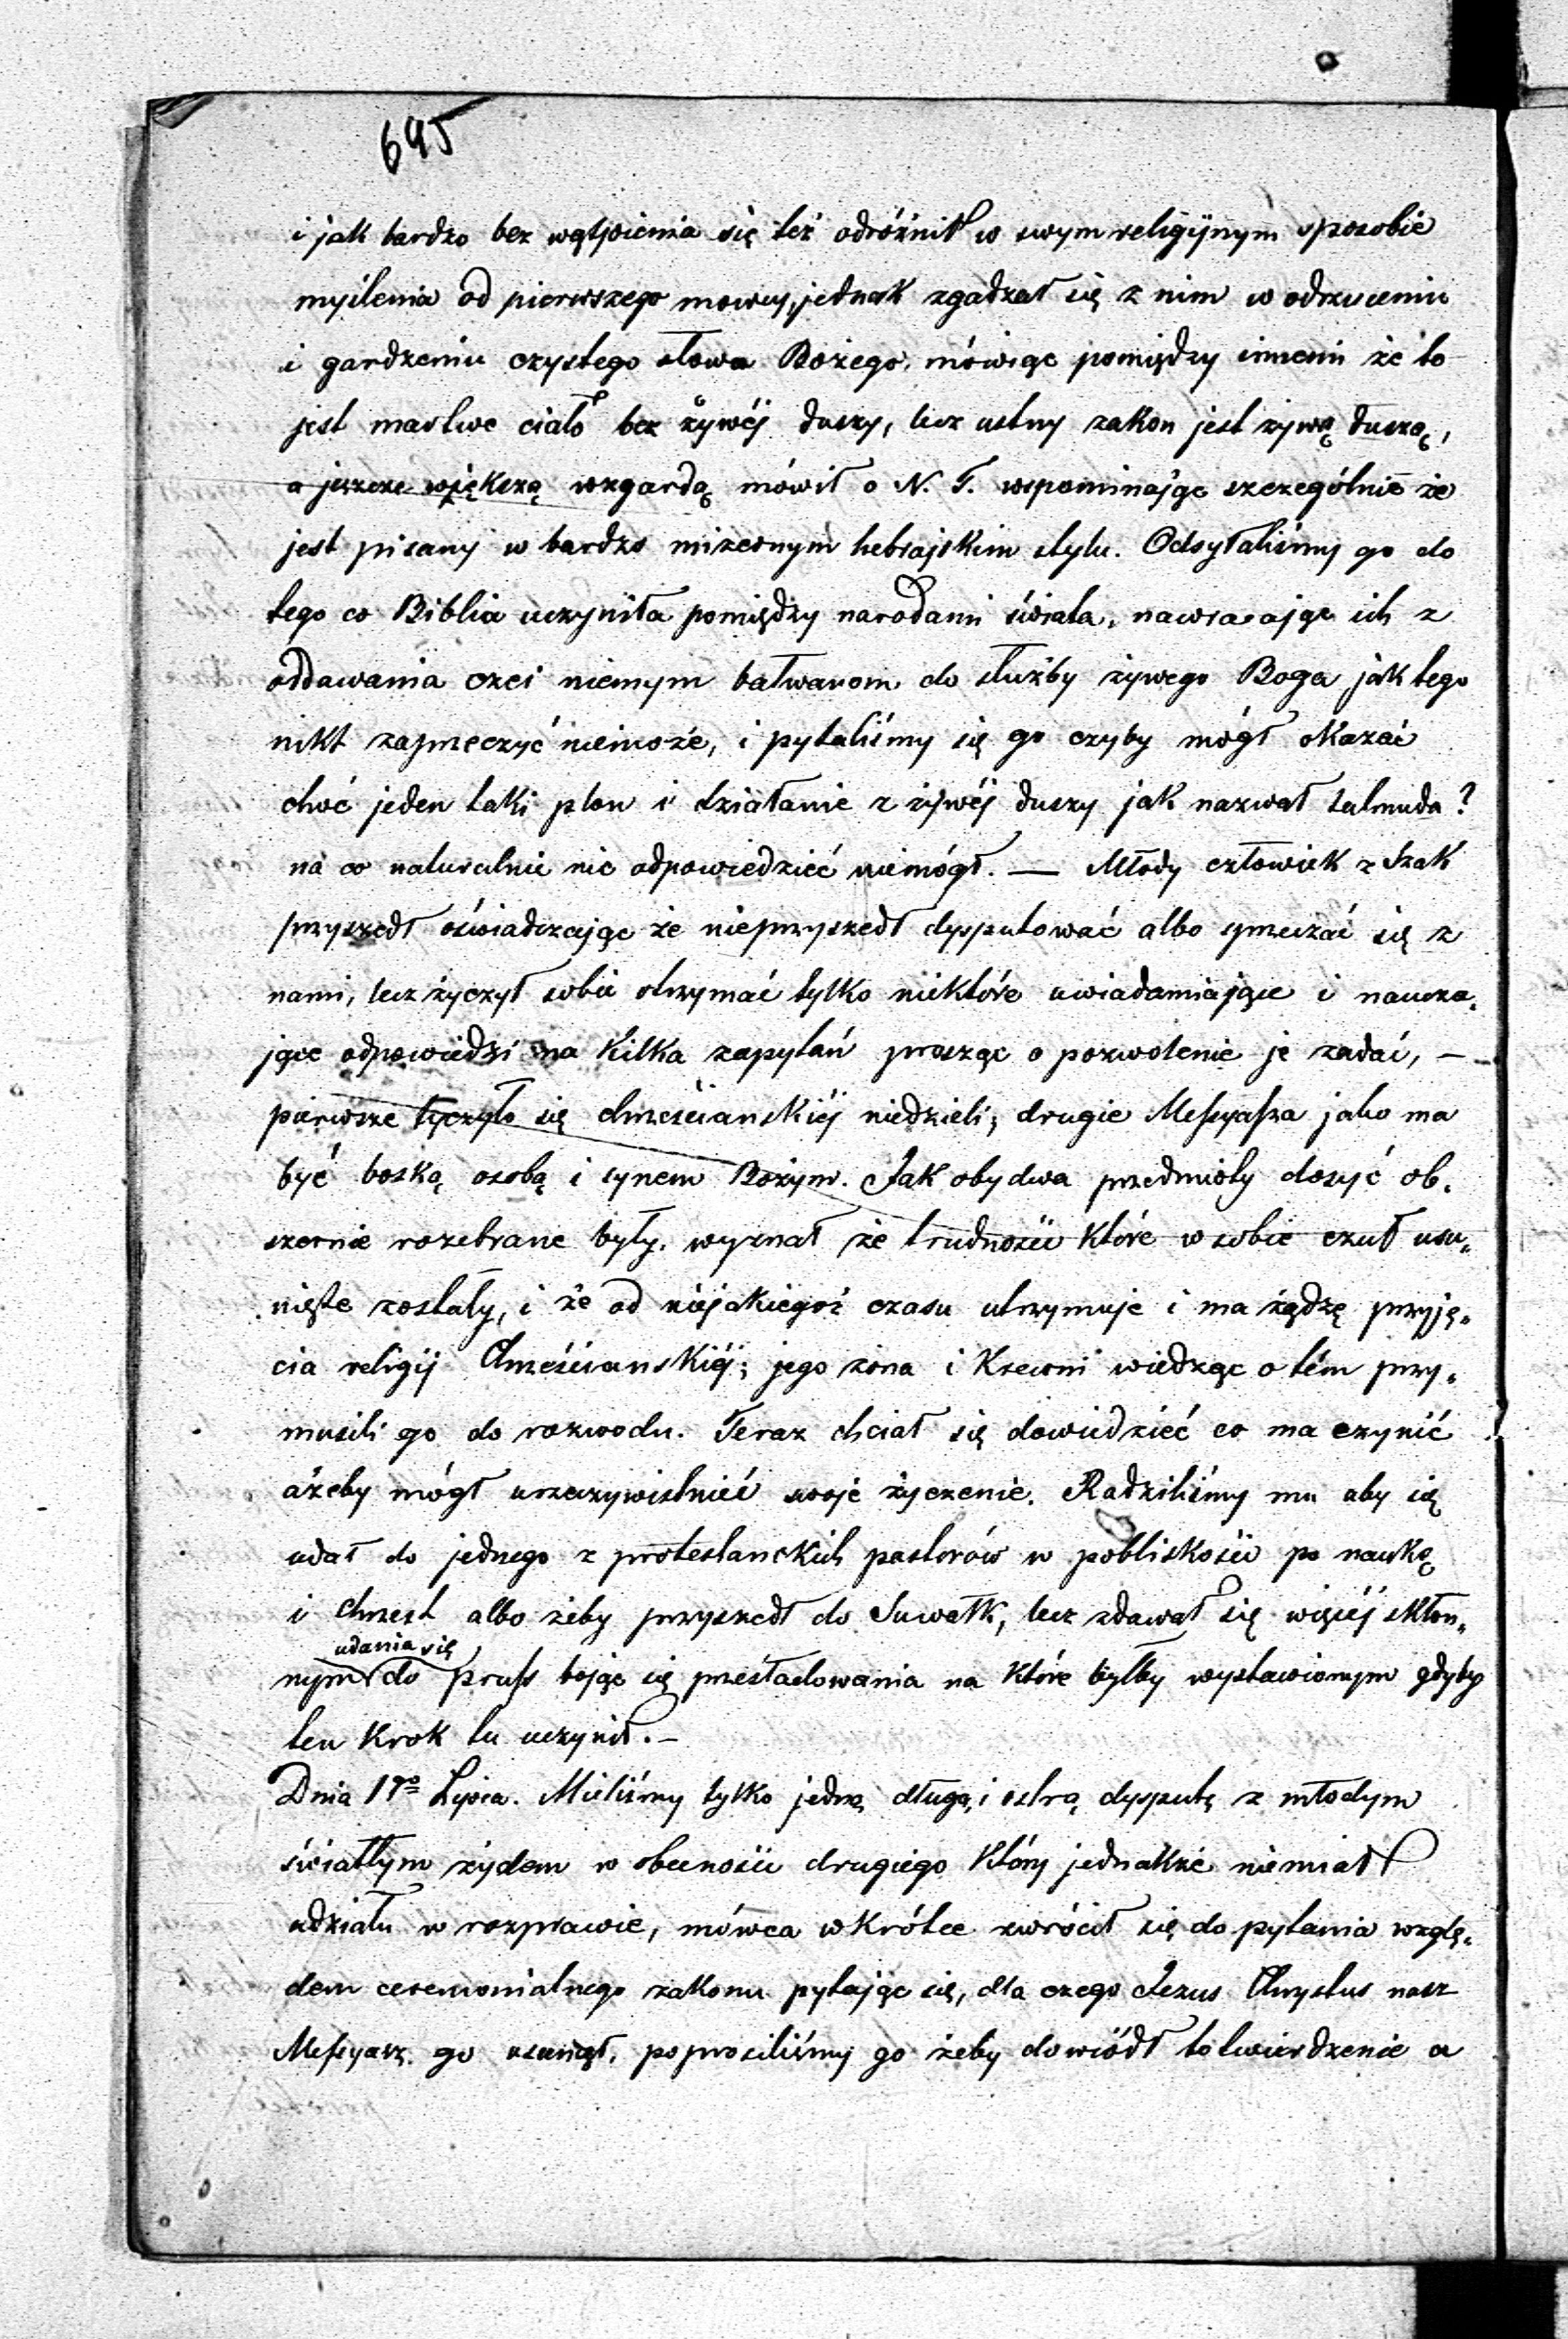 695
i jak bardzo bez wątpienia się też odróżnił w swym religijnym sposobie
myślenia od pierwszego mowcy, jednak zgadzał się z nim w odrzuceniu
i gardzeniu czystego słowa Bożego, mówiąc pomiędzy innemi że to
jest martwe ciało bez żywéj duszy, lecz ustny zakon jest żywą duszą,
a jeszcze większą wzgardą mówił o N. T. wspominając szczególnie że
jest pisany w bardzo mizernym hebrajskim stylu. Odsyłaliśmy go do
tego co Biblia uczyniła pomiędzy narodami świata, nawracając ich z
oddawania czci niemym bałwanom do służby żywego Boga jak tego
nikt zaprzeczyć niemoże, i pytaliśmy się go czyby mógł okazać
choć jeden taki plon i działanie z żywéj duszy jak nazwał talmuda?
na co naturalnie nic odpowiedzieć niemógł. — Młody człowiek z Szak
przyszedł oświadczając że nieprzyszedł dysputować albo sprzeczać się z
nami, lecz życzył sobie otrzymać tylko niektóre uwiadamiające i naucza-
jące odpowiedzi na kilka zapytań prosząc o pozwolenie je zadać, —
pierwsze tyczyło się chrześcianskiéj niedzieli, drugie Messyasza jako ma
być boską osobą i synem Bożym. Jak obydwa przedmioty dosyć ob-
szernie rozebrane były, wyznał że trudności które w sobie czuł usu-
nięte zostały, i że od niejakiegoś czasu utrzymuje i ma żądzę przyję-
cia religij Chrześcianskiéj; jego żona i krewni wiedząc o tém przy-
musili go do rozwodu. Teraz chciał się dowiedzieć co ma czynić
ażeby mógł urzeczywistnić swoje życzenie. Radziliśmy mu aby się
udał do jednego z protestanckich pastorów w pobliskości po naukę
i chrzest albo żeby przyszedł do Suwałk, lecz zdawał się więcéj skłon-
udania się
nym do Pruss bojąc się prześladowania na które byłby wystawionym gdyby
ten krok tu uczynił. —
Dnia 17go Lipca. Mieliśmy tylko jedną długą i ostrą dysputę z młodym
światłym żydem w obecności drugiego który jednakże niemiał
udziału w rozprawie, mówca wkrótce zwrócił się do pytania wzglę-
dem ceremonialnego zakonu pytając się, dla czego Jezus Chrystus nasz
Messyasz go usunął, poprosiliśmy go żeby dowiódł to twierdzenie a